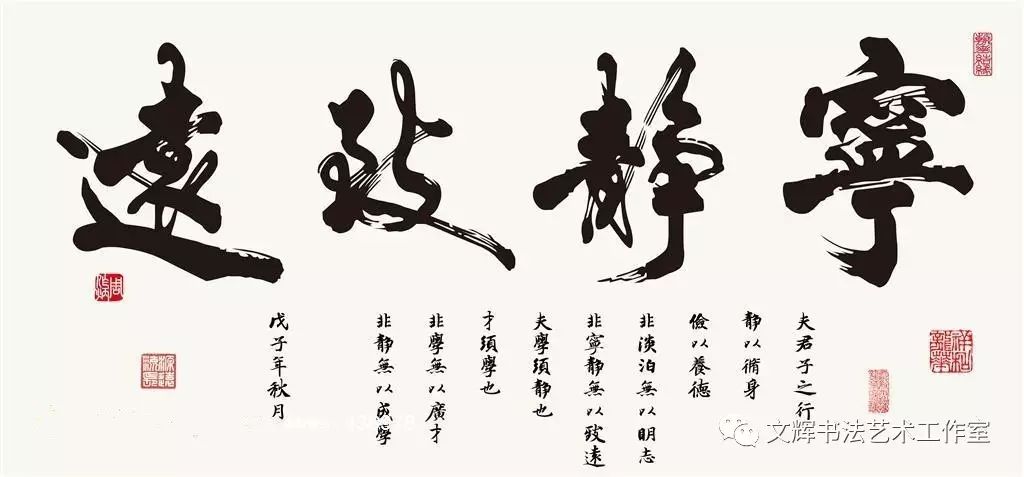 寧靜致遠
夫君子之行
靜以脩身
儉以養德
非淡泊無以明志
非寧靜無以致遠
夫學須靜也
才須學也
非學無以廣才
非靜無以成學
戊子年秋月
文辉书法艺术工作室